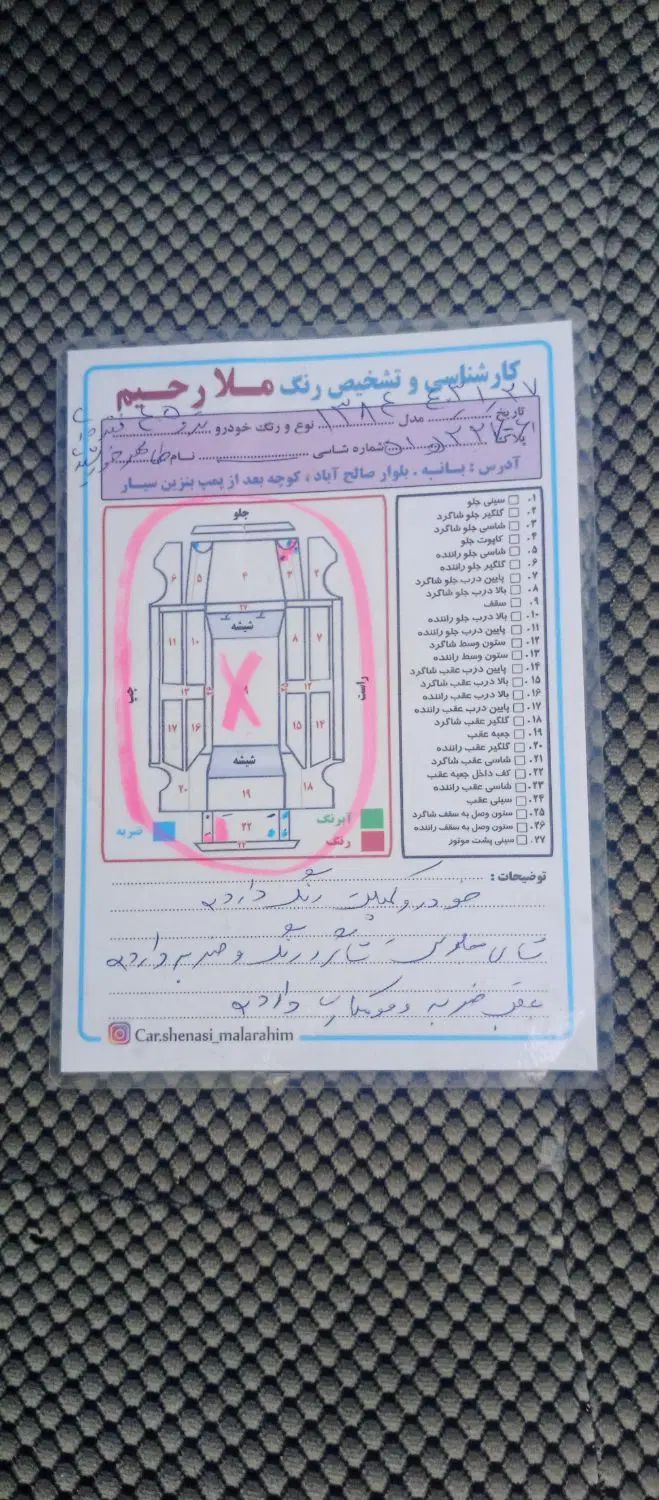 کارشناسی و تشخیص رنگ ملا رحیم
تاریخ مدل ۱۳۸۴ نوع و رنگ خودرو
پلاک شماره شاسی نام
آدرس : بانه . بلوار صالح آباد ، کوچه بعد از پمپ بنزین سیار
۱. سینی جلو
۲. گلگیر جلو شاگرد
۳. شاسی جلو شاگرد
۴. کاپوت جلو
۵. شاسی جلو راننده
۶. گلگیر جلو راننده
۷. پایین درب جلو شاگرد
۸. بالا درب جلو شاگرد
۹. سقف
۱۰. بالا درب جلو راننده
۱۱. پایین درب جلو راننده
۱۲. ستون وسط شاگرد
۱۳. ستون وسط راننده
۱۴. پایین درب عقب شاگرد
۱۵. بالا درب عقب شاگرد
۱۶. بالا درب عقب راننده
۱۷. پایین درب عقب راننده
۱۸. گلگیر عقب شاگرد
۱۹. جعبه عقب
۲۰. گلگیر عقب راننده
۲۱. شاسی عقب شاگرد
۲۲. کف داخل جعبه عقب
۲۳. شاسی عقب راننده
۲۴. سینی عقب
۲۵. ستون وصل به سقف شاگرد
۲۶. ستون وصل به سقف راننده
۲۷. سینی پشت موتور
جلو
۶ ۵ ۴ ۳ ۲
۲۷
شیشه
۱۱ ۱۰ ۹ ۸ ۷
چپ
راست
۱۳ ۱۲
۱۷ ۱۶ ۱۵ ۱۴
شیشه
۲۰ ۱۹ ۱۸
۲۲
آبرنگ
رنگ
ضربه
توضیحات :
خودرو کپلیت رنگ دارد
شاگرد رنگ و ضربه دارد
عقب ضربه و دارد
Car.shenasi_malarahim